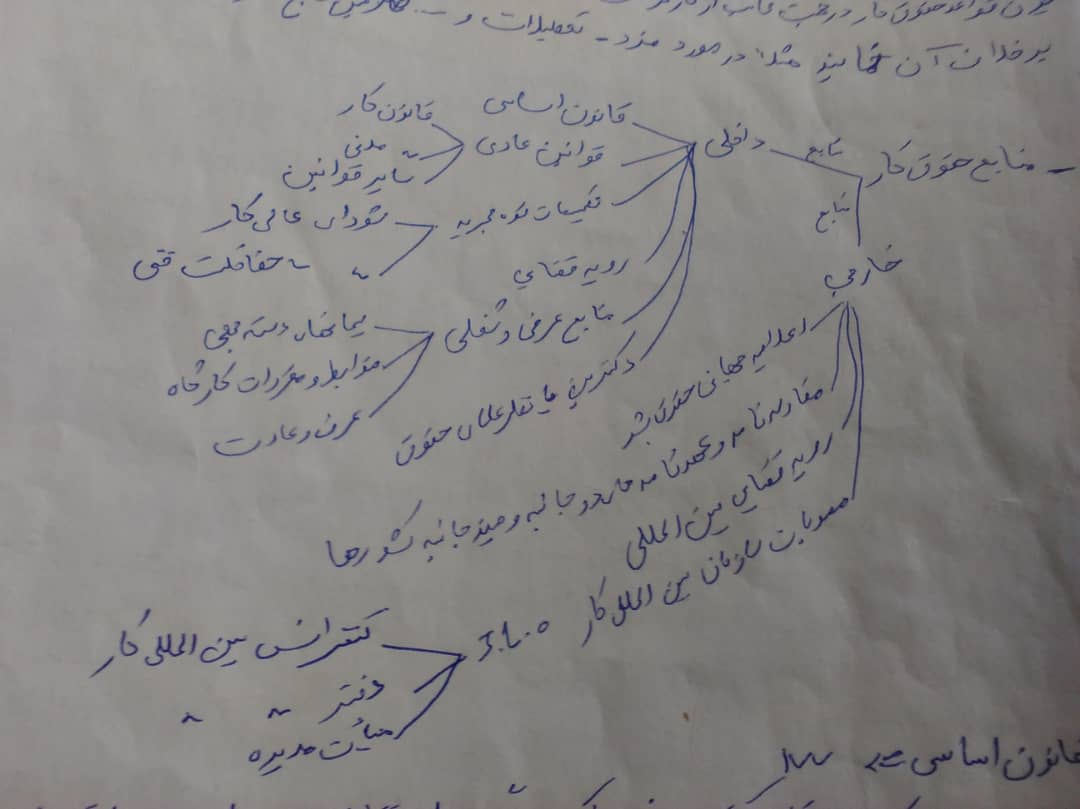 بر خلاف آن نمایند مثلا در مورد مزد - تعطیلات و
- منابع حقوق کار
منابع داخلی
قانون اساسی
قوانین عادی
قانون کار
مدنی
سایر قوانین
تصمیمات قوه مجریه
شورای عالی کار
〃 〃 حفاظت فنی
رویه قضایی
منابع عرفی و شغلی
پیمانهای دسته جمعی
ضوابط و مقررات کارگاه
عرف و عادت
دکترین یا نظر علمای حقوق
منابع خارجی
اعلامیه جهانی حقوق بشر
مقاوله نامه و عهدنامه های دو جانبه و چند جانبه کشورها
رویه قضایی بین المللی
مصوبات سازمان بین المللی کار I.L.O
کنفرانس بین المللی کار
دفتر 〃 〃
هیأت مدیره
قانون اساسی